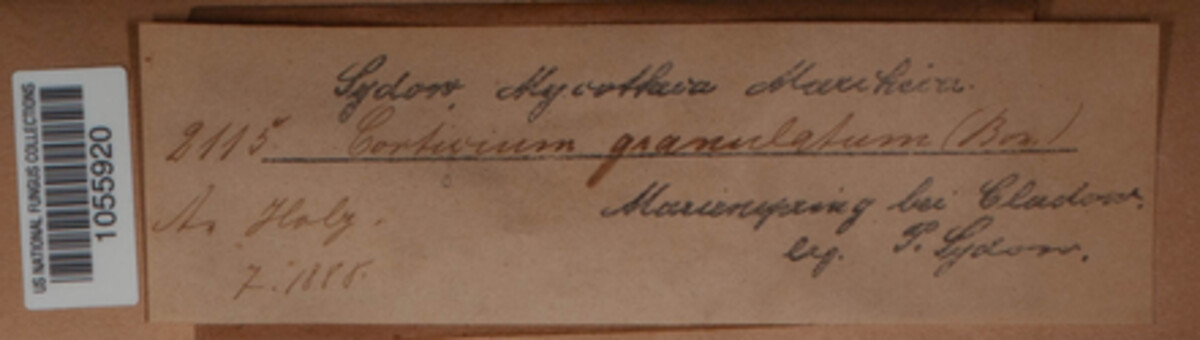 US NATIONAL FUNGUS COLLECTIONS
10559 20
Sydow, Mycotheca Marchica.
2115 Corticium granulatum (Bon.)
An Holz.
7. 1888.
Marienspring bei Cladow.
leg. P. Sydow.